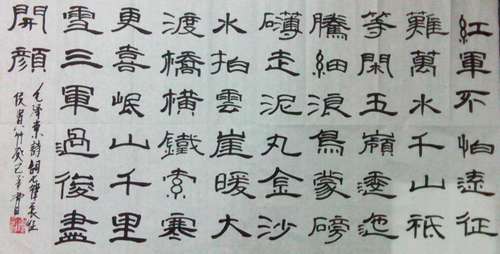 紅軍不怕遠征
難萬水千山祇
等閑五嶺逶迤
騰細浪烏蒙磅
礴走泥丸金沙
水拍雲崖暖大
渡橋橫鐵索寒
更喜岷山千里
雪三軍過後盡
開顏
毛澤東詩詞七律長征
癸巳年